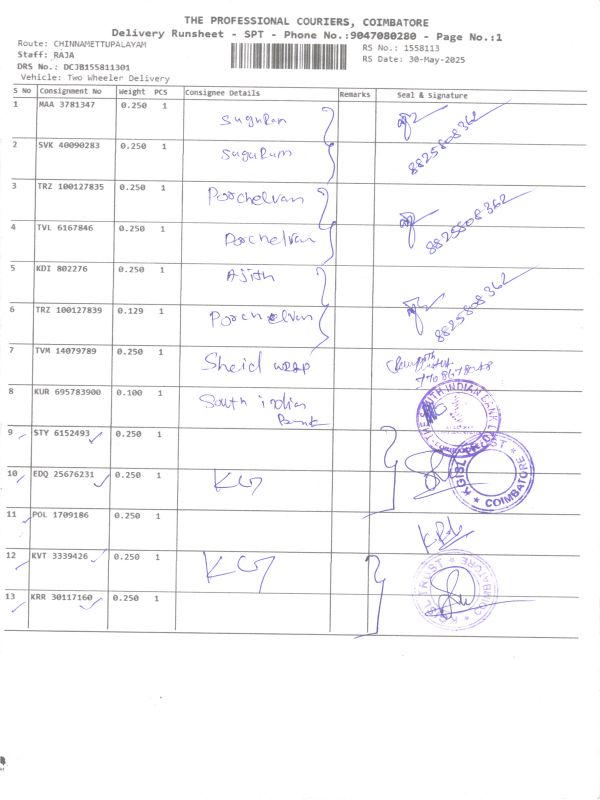 THE PROFESSIONAL COURIERS, COIMBATORE
Delivery Runsheet - SPT - Phone No.:9047080280 - Page No.:1
Route: CHINNAMETTUPALAYAM
RS No.: 1558113
Staff: RAJA
RS Date: 30-May-2025
DRS No.: DCJB155811301
Vehicle: Two Wheeler Delivery
S No Consignment No Weight PCS Consignee Details Remarks Seal & Signature
1 MAA 3781347 0.250 1 Suguran
8825808362
2 SVK 40090283 0.250 1 Sugurum
3 TRZ 100127835 0.250 1 Poorchelvan
8825508362
4 TVL 6167846 0.250 1 Poorchelvan
5 KDI 802276 0.250 1 Ajith
8825808362
6 TRZ 100127839 0.129 1 Poorchelvan
7 TVM 14079789 0.250 1 Sheid wrap
8 KUR 695783900 0.100 1 South indian
Bank
THE SOUTH INDIAN BANK
9 STY 6152493 0.250 1
10 EDQ 25676231 0.250 1 KG
KGISL TRUST * COIMBATORE *
11 POL 1709186 0.250 1
12 KVT 3339426 0.250 1 KG
TRUST * COIMBATORE *
13 KRR 30117160 0.250 1